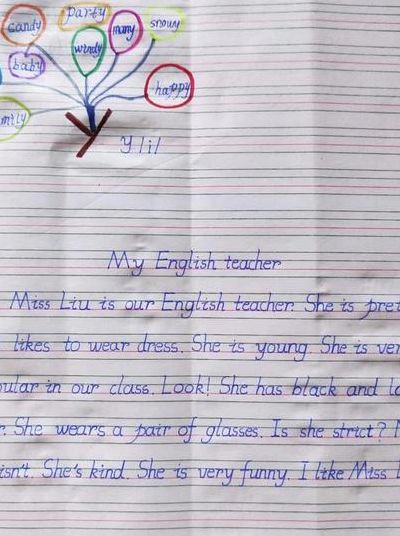 party
candy
many
snowy
windy
baby
happy
mily
Y /i/
My English teacher
Miss Liu is our English teacher. She is pret
likes to wear dress. She is young. She is ver
ular in our class. Look! She has black and lo
r. She wears a pair of glasses. Is she strict? N
isn't. She's kind. She is very funny. I like Miss L